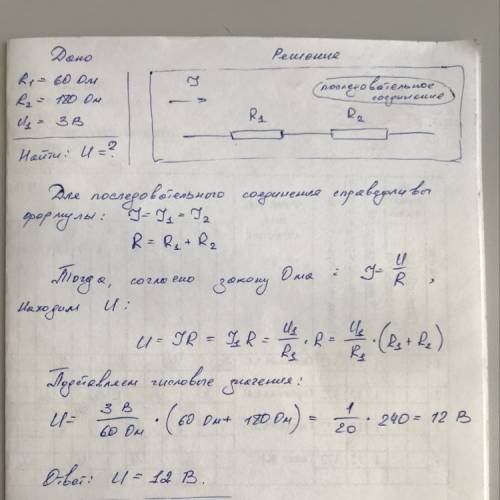 Дано
Решение
R₁ = 60 Ом
R₂ = 180 Ом
U₁ = 3 В
Найти: U = ?
I
последовательное
соединение
R₁ R₂
Для последовательного соединения справедливы
формулы: I = I₁ = I₂
R = R₁ + R₂
Тогда, согласно закону Ома: I = U/R,
находим U:
U = IR = I₁R = U₁/R₁ · R = U₁/R₁ · (R₁ + R₂)
Подставляем числовые значения:
U = 3 В/60 Ом · (60 Ом + 180 Ом) = 1/20 · 240 = 12 В
Ответ: U = 12 В.